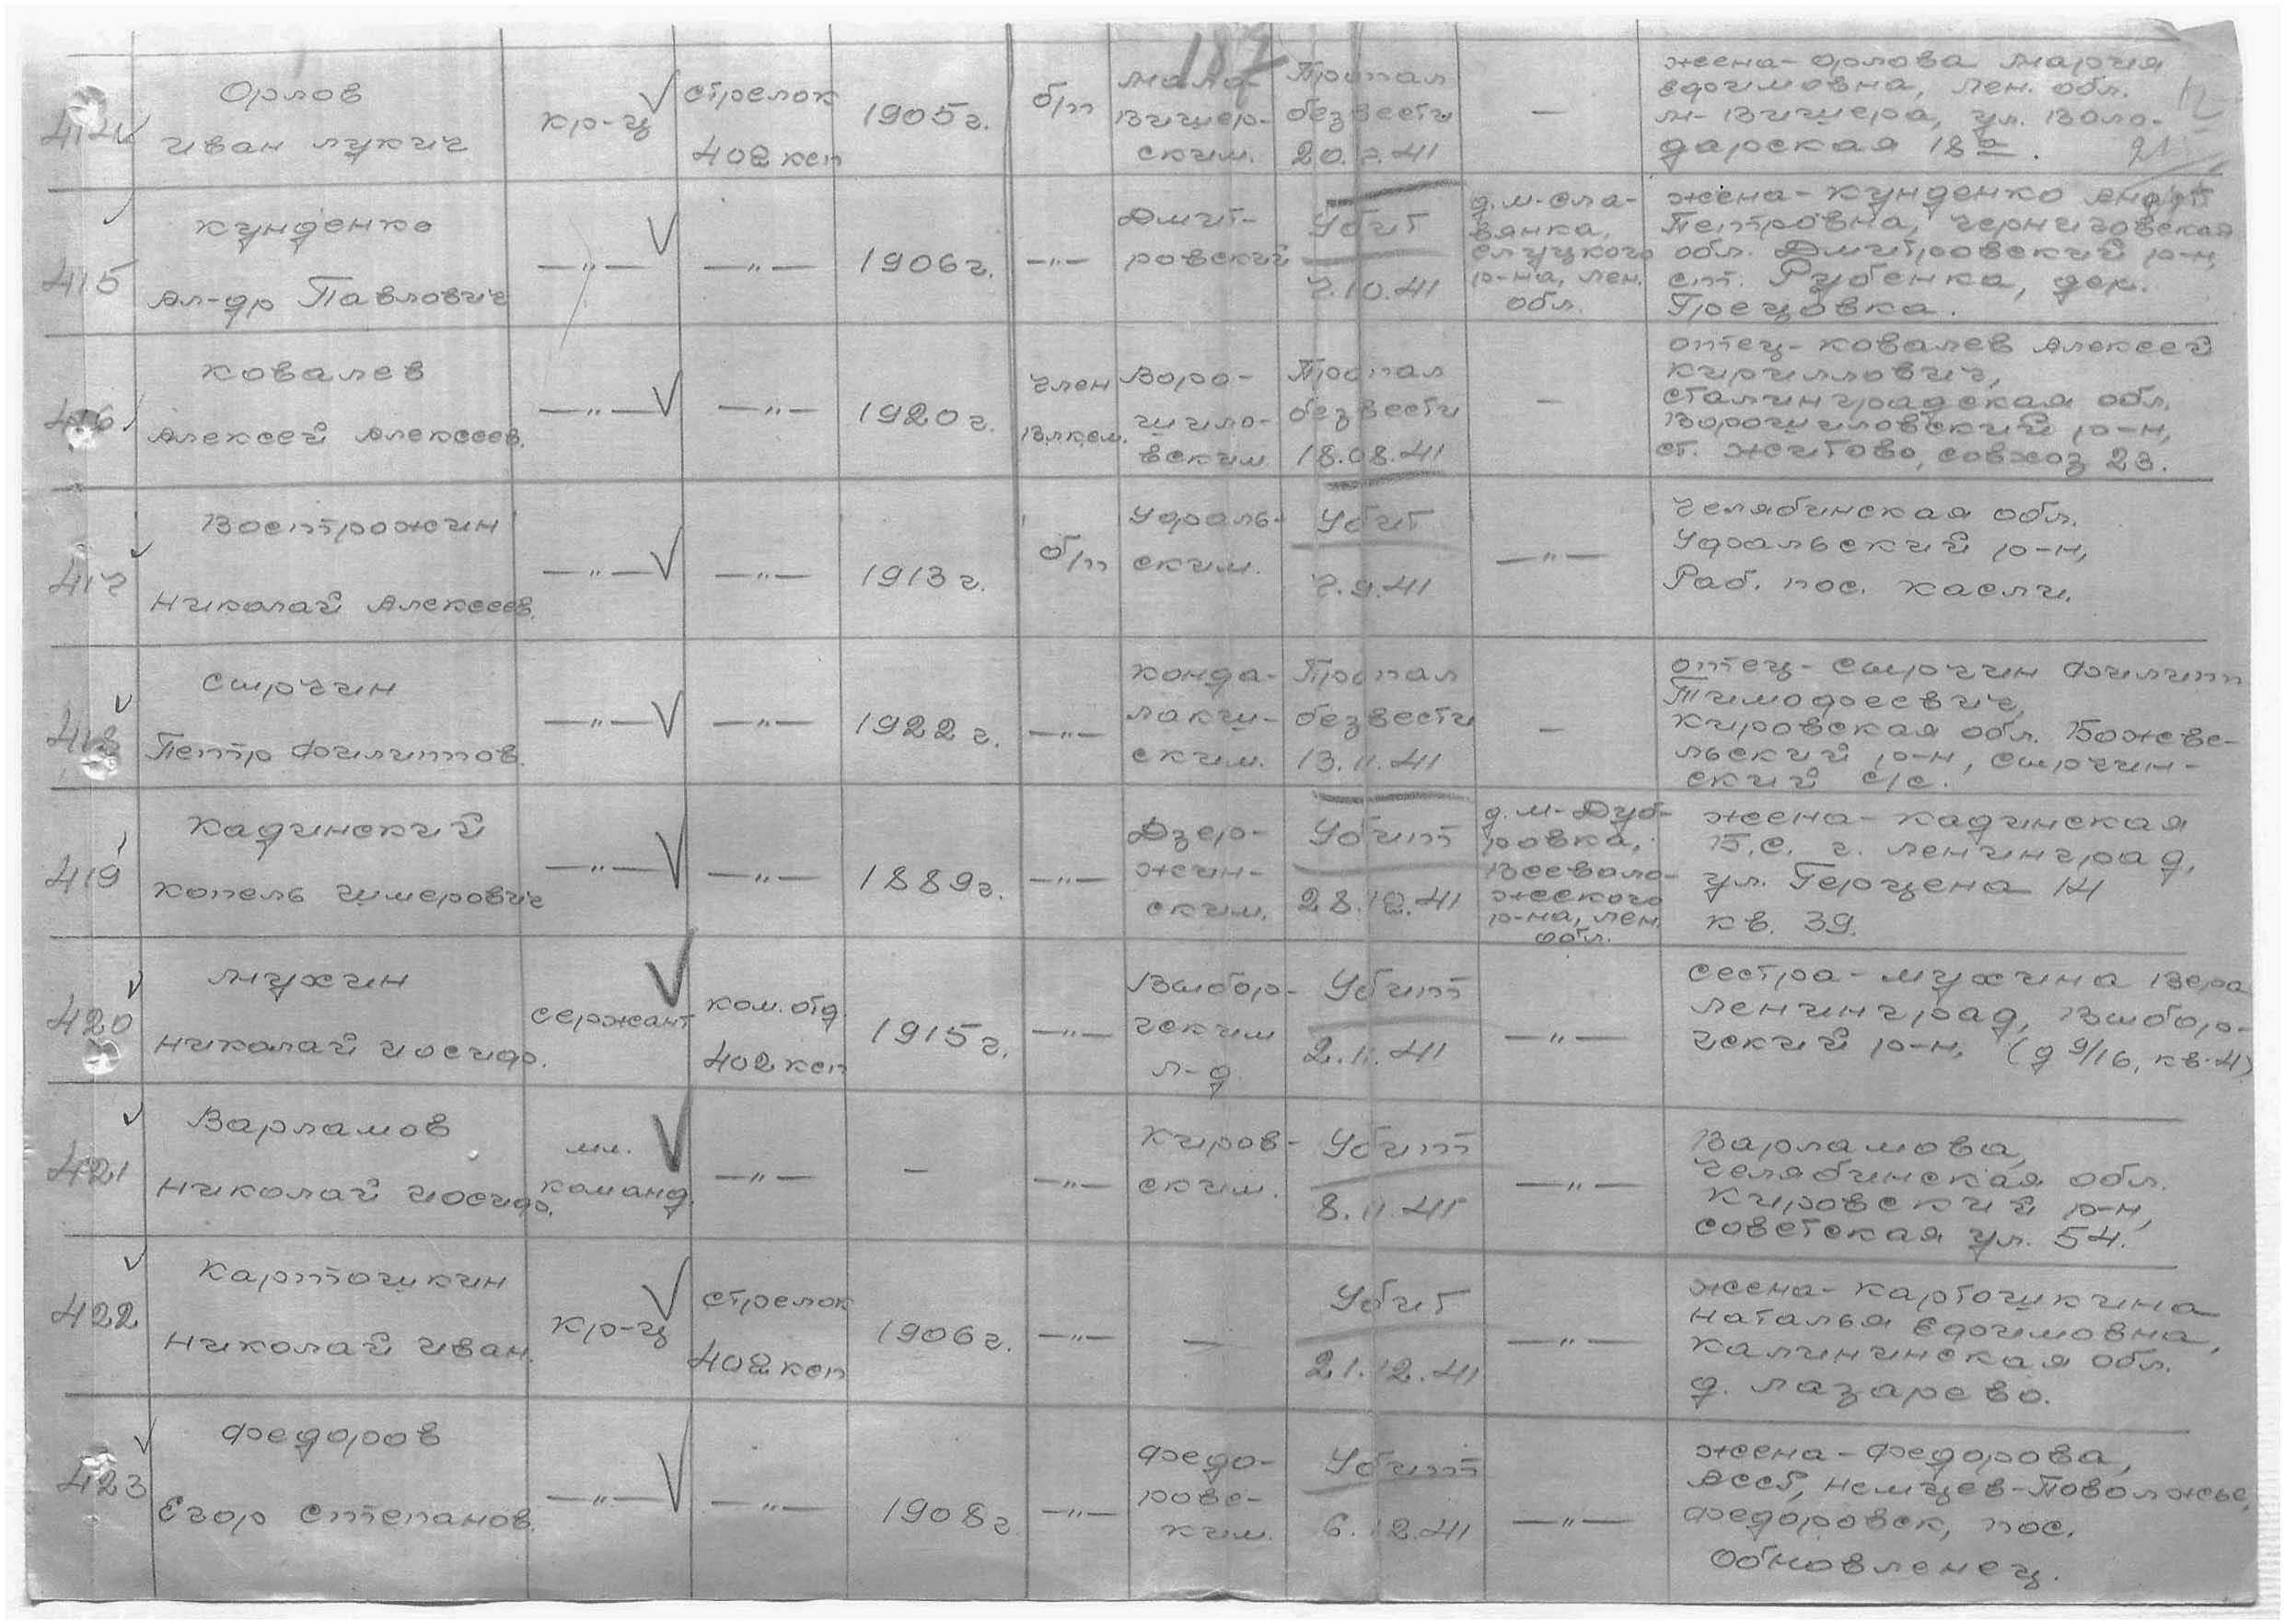 187
414
Орлов
Иван Лукич
кр-ц
стрелок
402 ксп
1905 г.
б/п
Мало-
Вишер-
ским.
Пропал
безвести
—
жена - Орлова Мария
Ефимовна, Лен. обл.
М-Вишера, ул. Воло-
дарская 18а.
415
Кунденко
Ал-др Павлович
—"—
—"—
1906 г.
—"—
Дмит-
ровский
Убит
7.10.41
д. м-Сла-
вянка,
Слуцкого
р-на, Лен.
обл.
жена - Кунденко
Петровна, Черниговская
обл. Дмитровский р-н,
ст. Рубенка, дер.
Грецовка.
416
Ковалев
Алексей Алексеев.
—"—
—"—
1920 г.
член
ВЛКСМ.
Воро-
шило-
вским
Пропал
безвести
18.08.41
—
отец - Ковалев Алексей
Кириллович,
Сталинградская обл.
Ворошиловский р-н,
ст. Житово, совхоз 23.
417
Востротин
Николай Алексеев.
—"—
—"—
1913 г.
б/п
Уфаль-
ским.
Убит
7.9.41
—"—
Челябинская обл.
Уфальский р-н,
Раб. пос. Касли.
418
Сырчин
Петр Филиппов.
—"—
—"—
1922 г.
—"—
Конда-
лакш-
ским.
Пропал
безвести
13.11.41
—
отец - Сырчин Филипп
Тимофеевич,
Кировская обл. Божеве-
льский р-н, Сырчин-
ский с/с.
419
Кадинский
Копель Шмерович
—"—
—"—
1889 г.
—"—
Дзер-
жин-
ским.
Убит
28.10.41
д. м-Дуб-
ровка,
Всеволо-
жского
р-на, Лен.
обл.
жена - Кадинская
Б.С. г. Ленинград,
ул. Герцена 14
кв. 39.
420
Мухин
Николай Иосиф.
сержант
ком. отд.
402 ксп
1915 г.
—"—
Выбор-
гским
Л-д
Убит
2.11.41
—"—
сестра - Мухина Вера
Ленинград, Выбор-
гский р-н, (д 9/16, кв. 4)
421
Варламов
Николай Иосиф.
мл.
команд.
—"—
—
—"—
Киров-
ским.
Убит
8.11.41
—"—
Варламова,
Челябинская обл.
Кировский р-н,
Советская ул. 54.
422
Картошкин
Николай Иван.
кр-ц
стрелок
402 ксп
1906 г.
—"—
—
Убит
21.12.41
—"—
жена - Картошкина
Наталья Ефимовна,
Калининская обл.
д. Лазарево.
423
Федоров
Егор Степанов.
—"—
—"—
1908 г
—"—
Федо-
ровс-
ким.
Убит
6.12.41
—"—
жена - Федорова,
АССР, Немцев-Поволжье,
Федоровск, пос.
Обновленец.